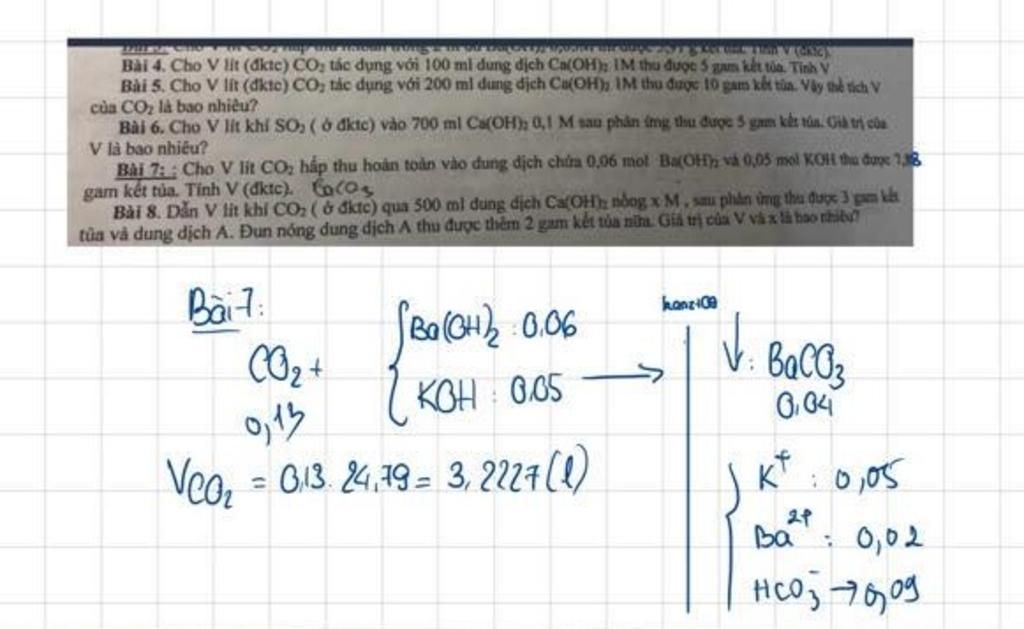 Bài 4. Cho V lít (đktc) CO₂ tác dụng với 100 ml dung dịch Ca(OH)₂ 1M thu được 5 gam kết tủa. Tính V
Bài 5. Cho V lít (đktc) CO₂ tác dụng với 200 ml dung dịch Ca(OH)₂ 1M thu được 10 gam kết tủa. Vậy thể tích V
của CO₂ là bao nhiêu?
Bài 6. Cho V lít khí SO₂ ( ở đktc) vào 700 ml Ca(OH)₂ 0,1 M sau phản ứng thu được 5 gam kết tủa. Giá trị của
V là bao nhiêu?
Bài 7: : Cho V lít CO₂ hấp thu hoàn toàn vào dung dịch chứa 0,06 mol Ba(OH)₂ và 0,05 mol KOH thu được 7,88
gam kết tủa. Tính V (đktc).
Bài 8. Dẫn V lít khí CO₂ ( ở đktc) qua 500 ml dung dịch Ca(OH)₂ nồng x M , sau phản ứng thu được 3 gam kết
tủa và dung dịch A. Đun nóng dung dịch A thu được thêm 2 gam kết tủa nữa. Giá trị của V và x là bao nhiêu?
Bài 7:
CO₂ +
0,13
Ba(OH)₂ : 0,06
KOH : 0,05 →
↓ : BaCO₃
0,04
V CO₂ = 0,13. 24,79 = 3,2227 (l)
K⁺ : 0,05
Ba²⁺ : 0,02
HCO₃⁻ → 0,09